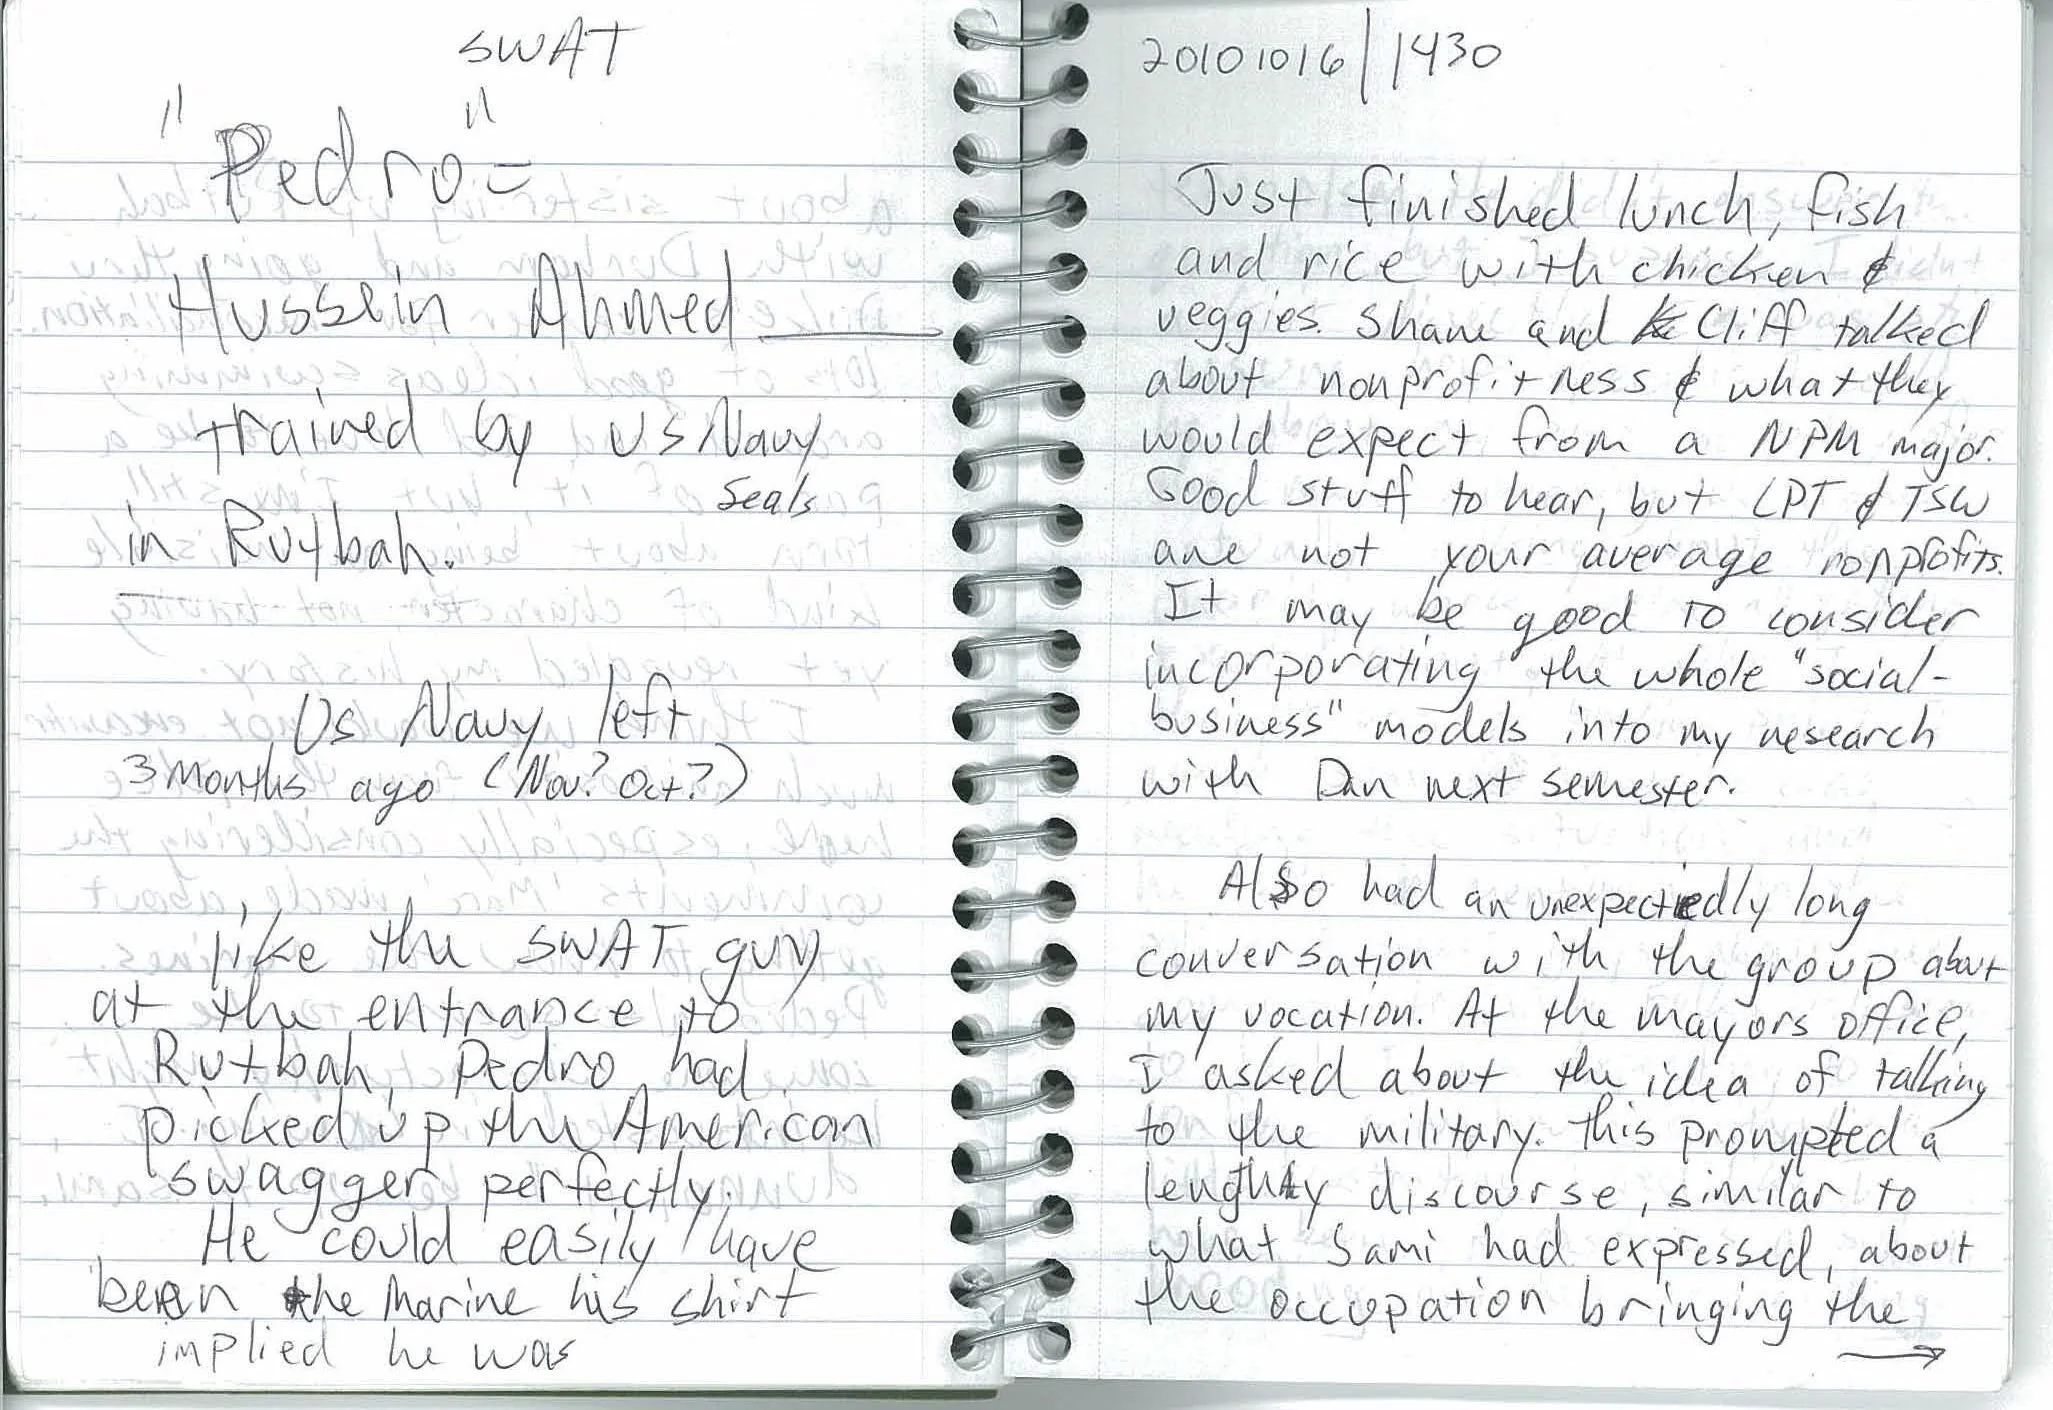 SWAT
"Pedro" =
Hussein Ahmed ____
trained by US Navy
Seals
in Rutbah.
US Navy left
3 months ago (Nov? Oct?)
like the SWAT guy
at the entrance to
Rutbah, Pedro had
picked up the American
swagger perfectly.
He could easily have
been the Marine his shirt
implied he was
20101016/1430
Just finished lunch, fish
and rice with chicken &
veggies. Shane and Cliff talked
about nonprofitness & what they
would expect from a NPM major.
Good stuff to hear, but LPT & TSW
are not your average nonprofits.
It may be good to consider
incorporating the whole "social-
business" models into my research
with Dan next semester.
Also had an unexpectedly long
conversation with the group about
my vocation. At the mayors office,
I asked about the idea of talking
to the military. This prompted a
lengthy discourse, similar to
what Sami had expressed, about
the occupation bringing the
→